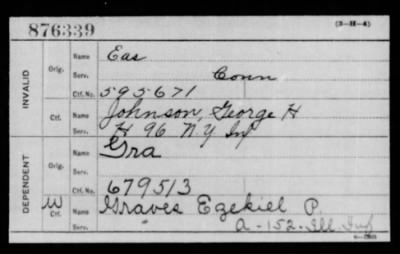 876339
(3-H-4)
INVALID
Orig.
Name Eas
Serv. Conn
Ctf. No. 595671
Ctf.
Name Johnson, George H
Serv. H 96 N.Y Inf
DEPENDENT
Orig.
Name Gra
Serv.
Ctf. No. 679513
W Ctf.
Name Graves Ezekiel P.
Serv. A-152-Ill. Inf